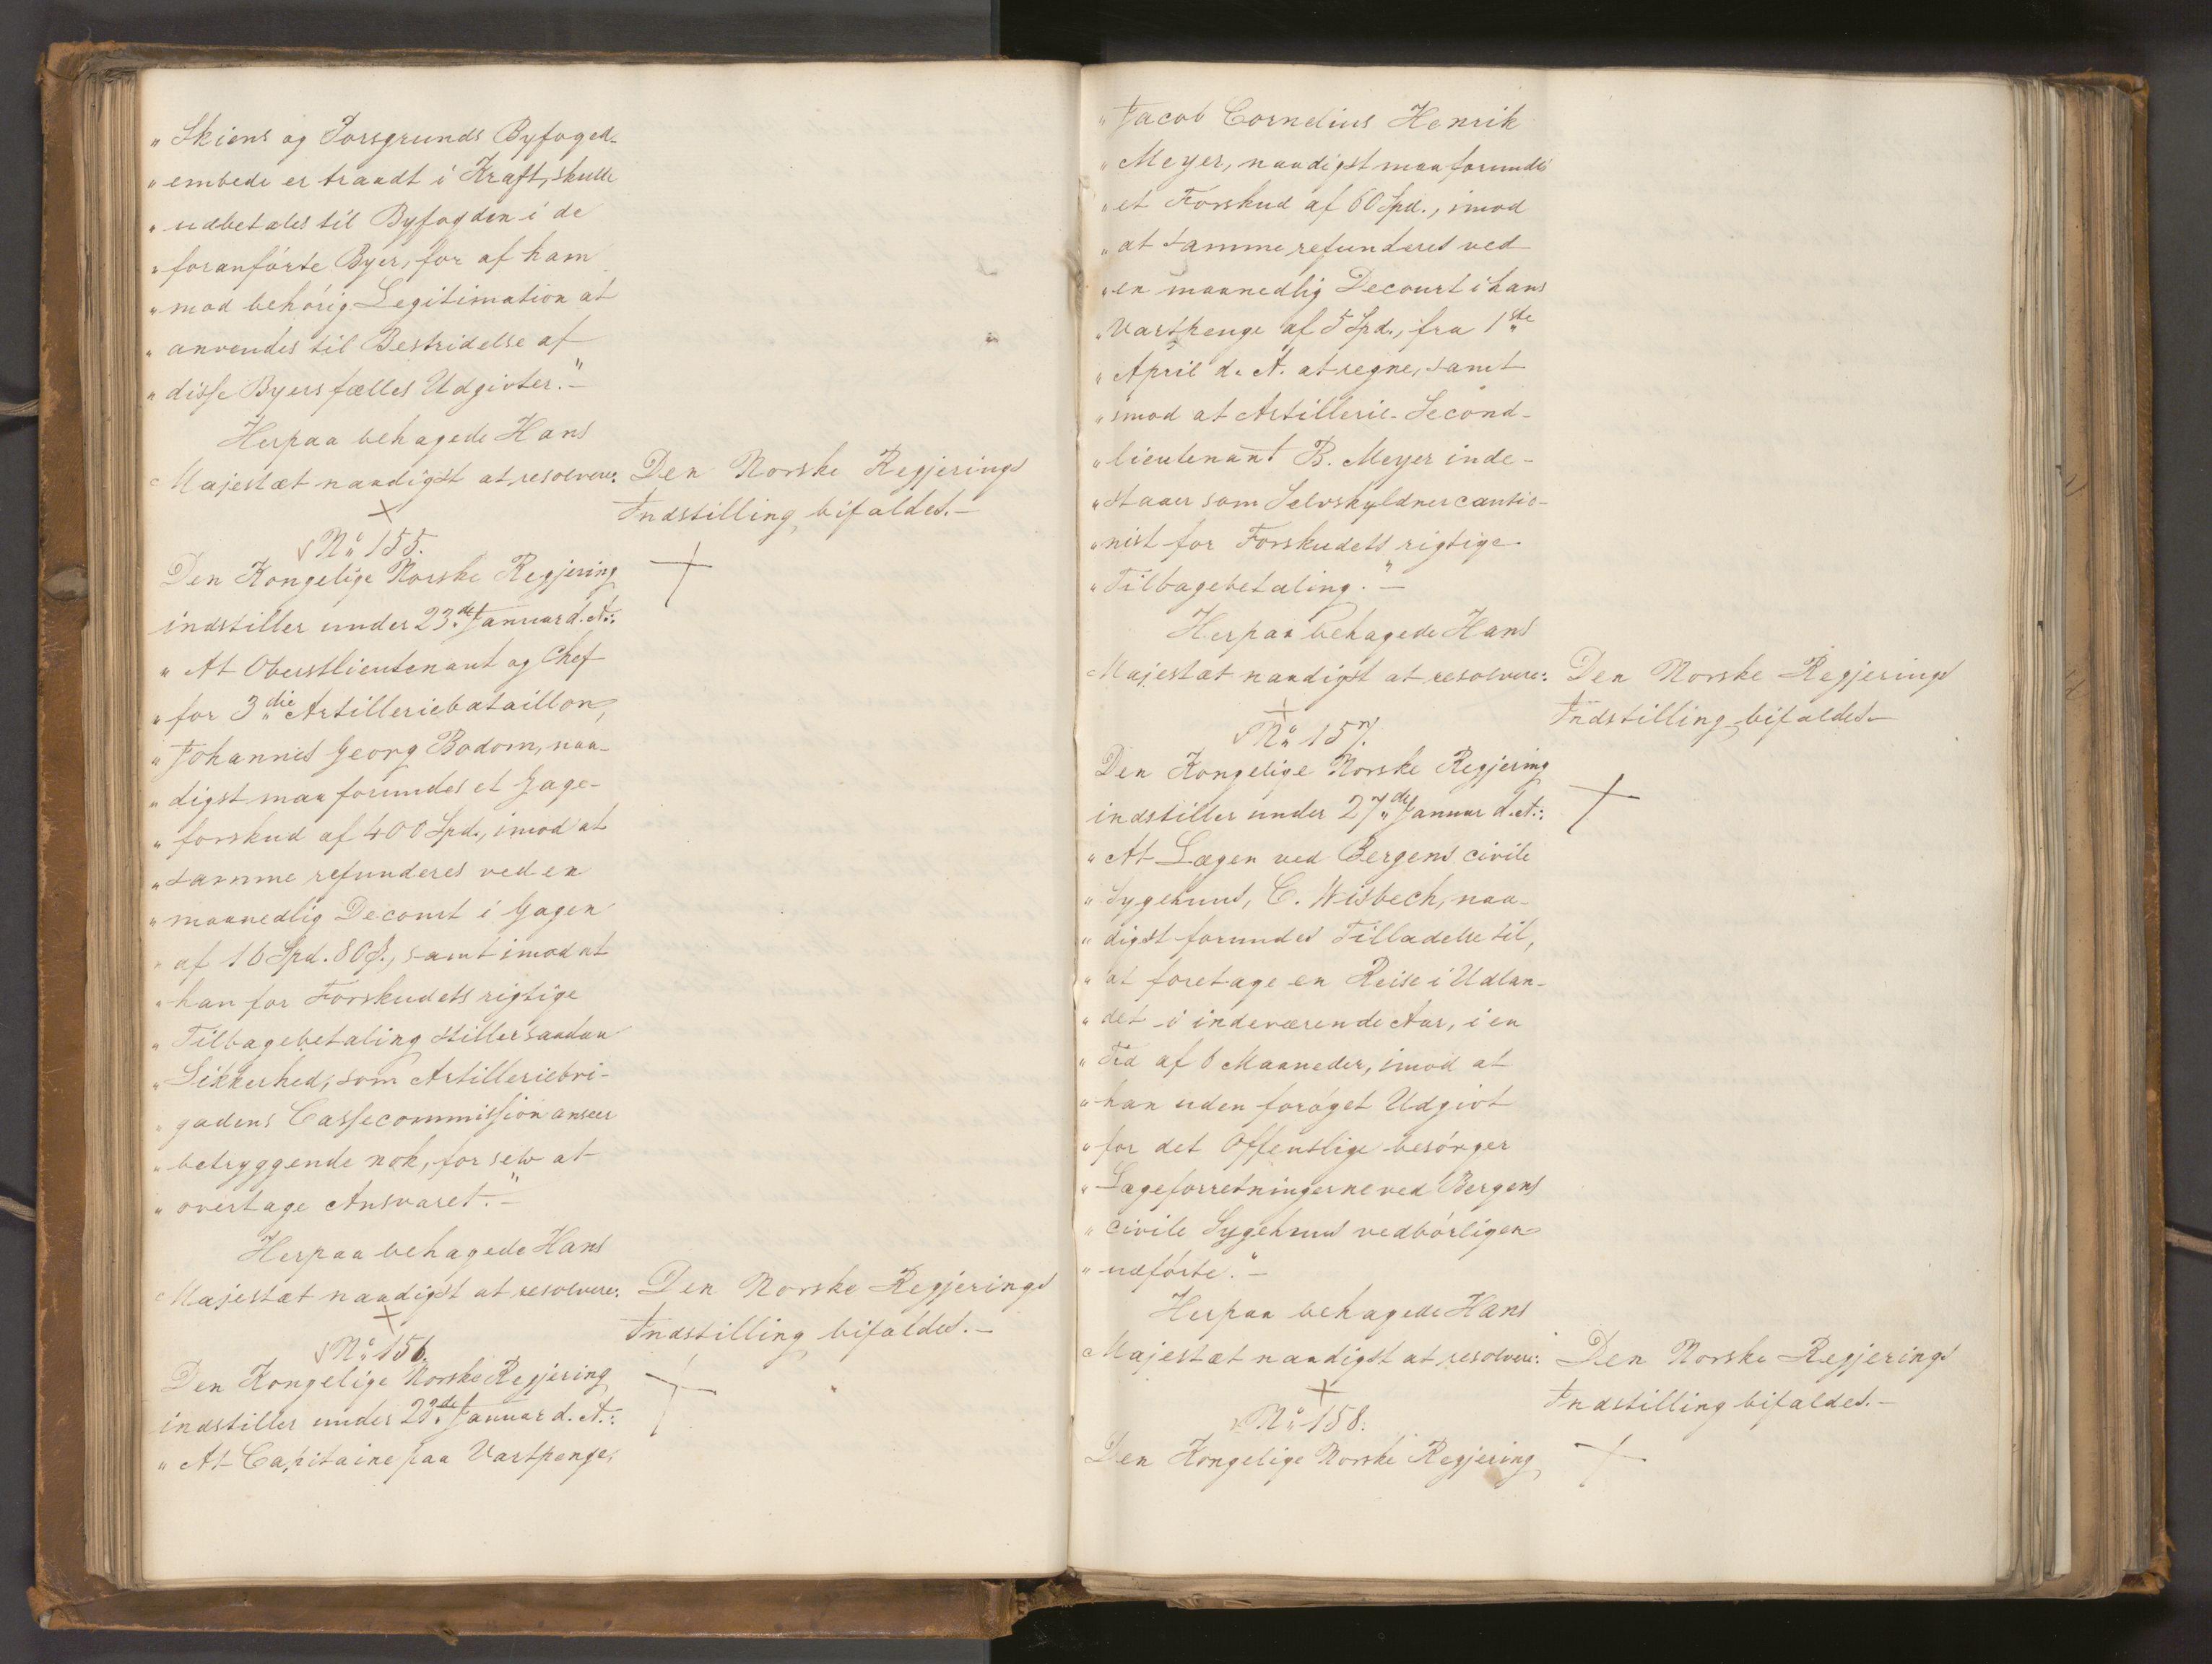 „Skiens og Porsgrunds Byfoged-
„embede er traadt i Kraft, skulle
„udbetales til Byfogden i de
„foranførte Byer, for af ham
„mod behørig Legitimation at
„anvendes til Bestridelse af
„disse Byers fælles Udgivter."–
Herpaa behagede Hans
Majestæt naadigst at resolvere:
Den Norske Regjerings
Indstilling bifaldes.–
No 155.
Den Kongelige Norske Regjering
indstiller under 23de Januar d. A.:
„At Oberstlieutenant og Chef
„for 3die Artilleriebataillon,
„Johannes Georg Bodom, naa-
„digst maa forundes et Gage-
„forskud af 400 Spd., imod at
„samme refunderes ved en
„maanedlig Decourt i Gagen
„af 16 Spd. 80 s., samt imod at
„han for Forskudets rigtige
„Tilbagebetaling stiller saadan
„Sikkerhed, som Artilleriebri-
„gadens Cassecommission anseer
„betryggende nok, for selv at
„overtage Ansvaret."–
Herpaa behagede Hans
Majestæt naadigst at resolvere:
Den Norske Regjerings
Indstilling bifaldes.–
No 156.
Den Kongelige Norske Regjering
indstiller under Januar d. A.:
„At Capitaine paa Vartpenge,
„Jacob Cornelius Henrik
„Meyer, naadigst maa forundes
„et Forskud af 60 Spd., imod
„at samme refunderes ved
„en maanedlig Decourt i hans
„Vartpenge af 5 Spd., fra 1ste
„April d. A. at regne, samt
„imod at Artillerie-Second-
„lieutenant B. Meyer inde-
„staaer som Selvskyldnercautio-
„nist for Forskudets rigtige
„Tilbagebetaling."–
Herpaa behagede Hans
Majestæt naadigst at resolvere:
Den Norske Regjerings
Indstilling bifaldes.–
No 157.
Den Kongelige Norske Regjering
indstiller under 27de Januar d. A.:
„At Lægen ved Bergens civile
„Sygehuus, C. Wisbech, naa-
„digst forundes Tilladelse til,
„at foretage en Reise i Udlan-
„det i indeværende Aar, i en
„Tid af 6 Maaneder, imod at
„han uden forøget Udgivt
„for det Offentlige besørger
„Lægeforretningerne ved Bergens
„civile Sygehuus vedbørligen
„udførte."–
Herpaa behagede Hans
Majestæt naadigst at resolvere:
Den Norske Regjerings
Indstilling bifaldes.–
No 158.
Den Kongelige Norske Regjering